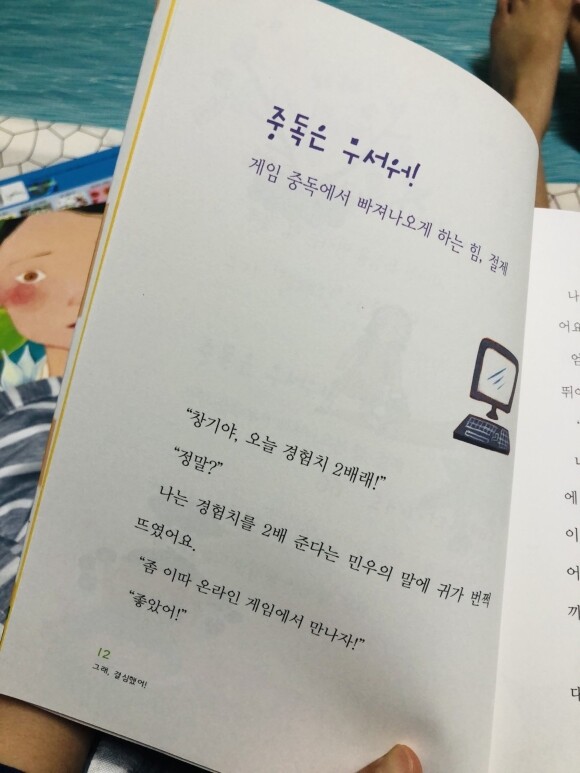 중독은 무서워!
게임 중독에서 빠져나오게 하는 힘, 절제
“창기야, 오늘 경험치 2배래!”
“정말?”
나는 경험치를 2배 준다는 민우의 말에 귀가 번쩍
뜨였어요.
“좀 이따 온라인 게임에서 만나자!”
“좋았어!”
12
그래, 결심했어!
나
어요
엄
뛰어
에
이
어
까
다